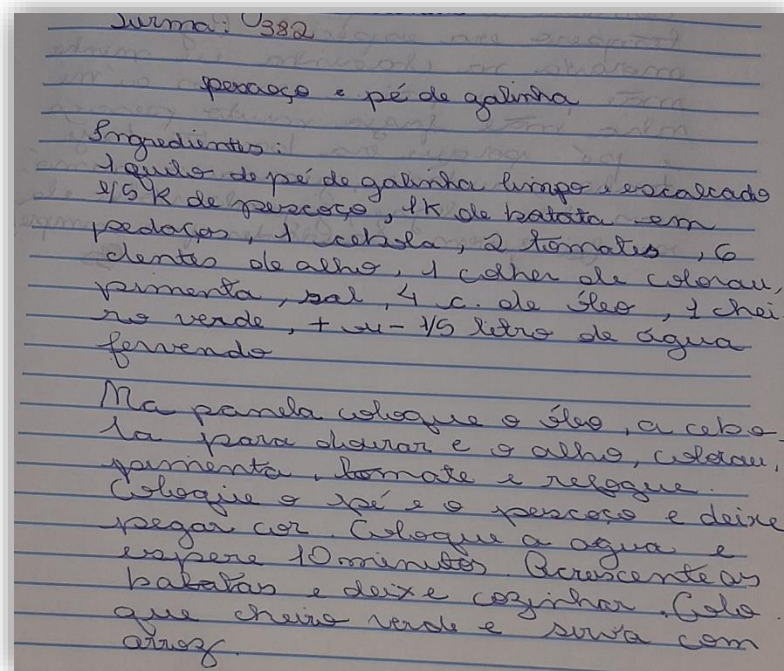 Turma: 382
pescoço e pé de galinha
Ingredientes:
1 quilo de pé de galinha limpo e escalcado
1/5 K de pescoço, 1K de batata em
pedaços, 1 cebola, 2 tomates, 6
dentes de alho, 1 colher de colorau,
pimenta, sal, 4 c. de óleo, 1 chei-
ro verde, + ou - 1/5 litro de água
fervendo
Na panela coloque o óleo, a cebo-
la para dourar e o alho, colorau,
pimenta, tomate e refogue.
Coloque o pé e o pescoço e deixe
pegar cor. Coloque a agua e
espere 10 minutos. Acrescente as
batatas e deixe cozinhar. Colo
que cheiro verde e sirva com
arroz.